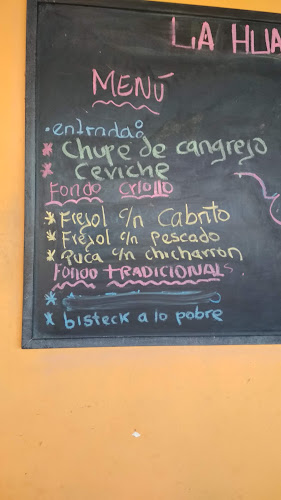 LA HUA
MENÚ
•entrada:
* Chupe de cangrejo
* Ceviche
Fondo criollo
* Frejol c/n Cabrito
* Frejol c/n pescado
* Ruca c/n chicharron
Fondo TRADICIONALS
*
* bisteck a lo pobre